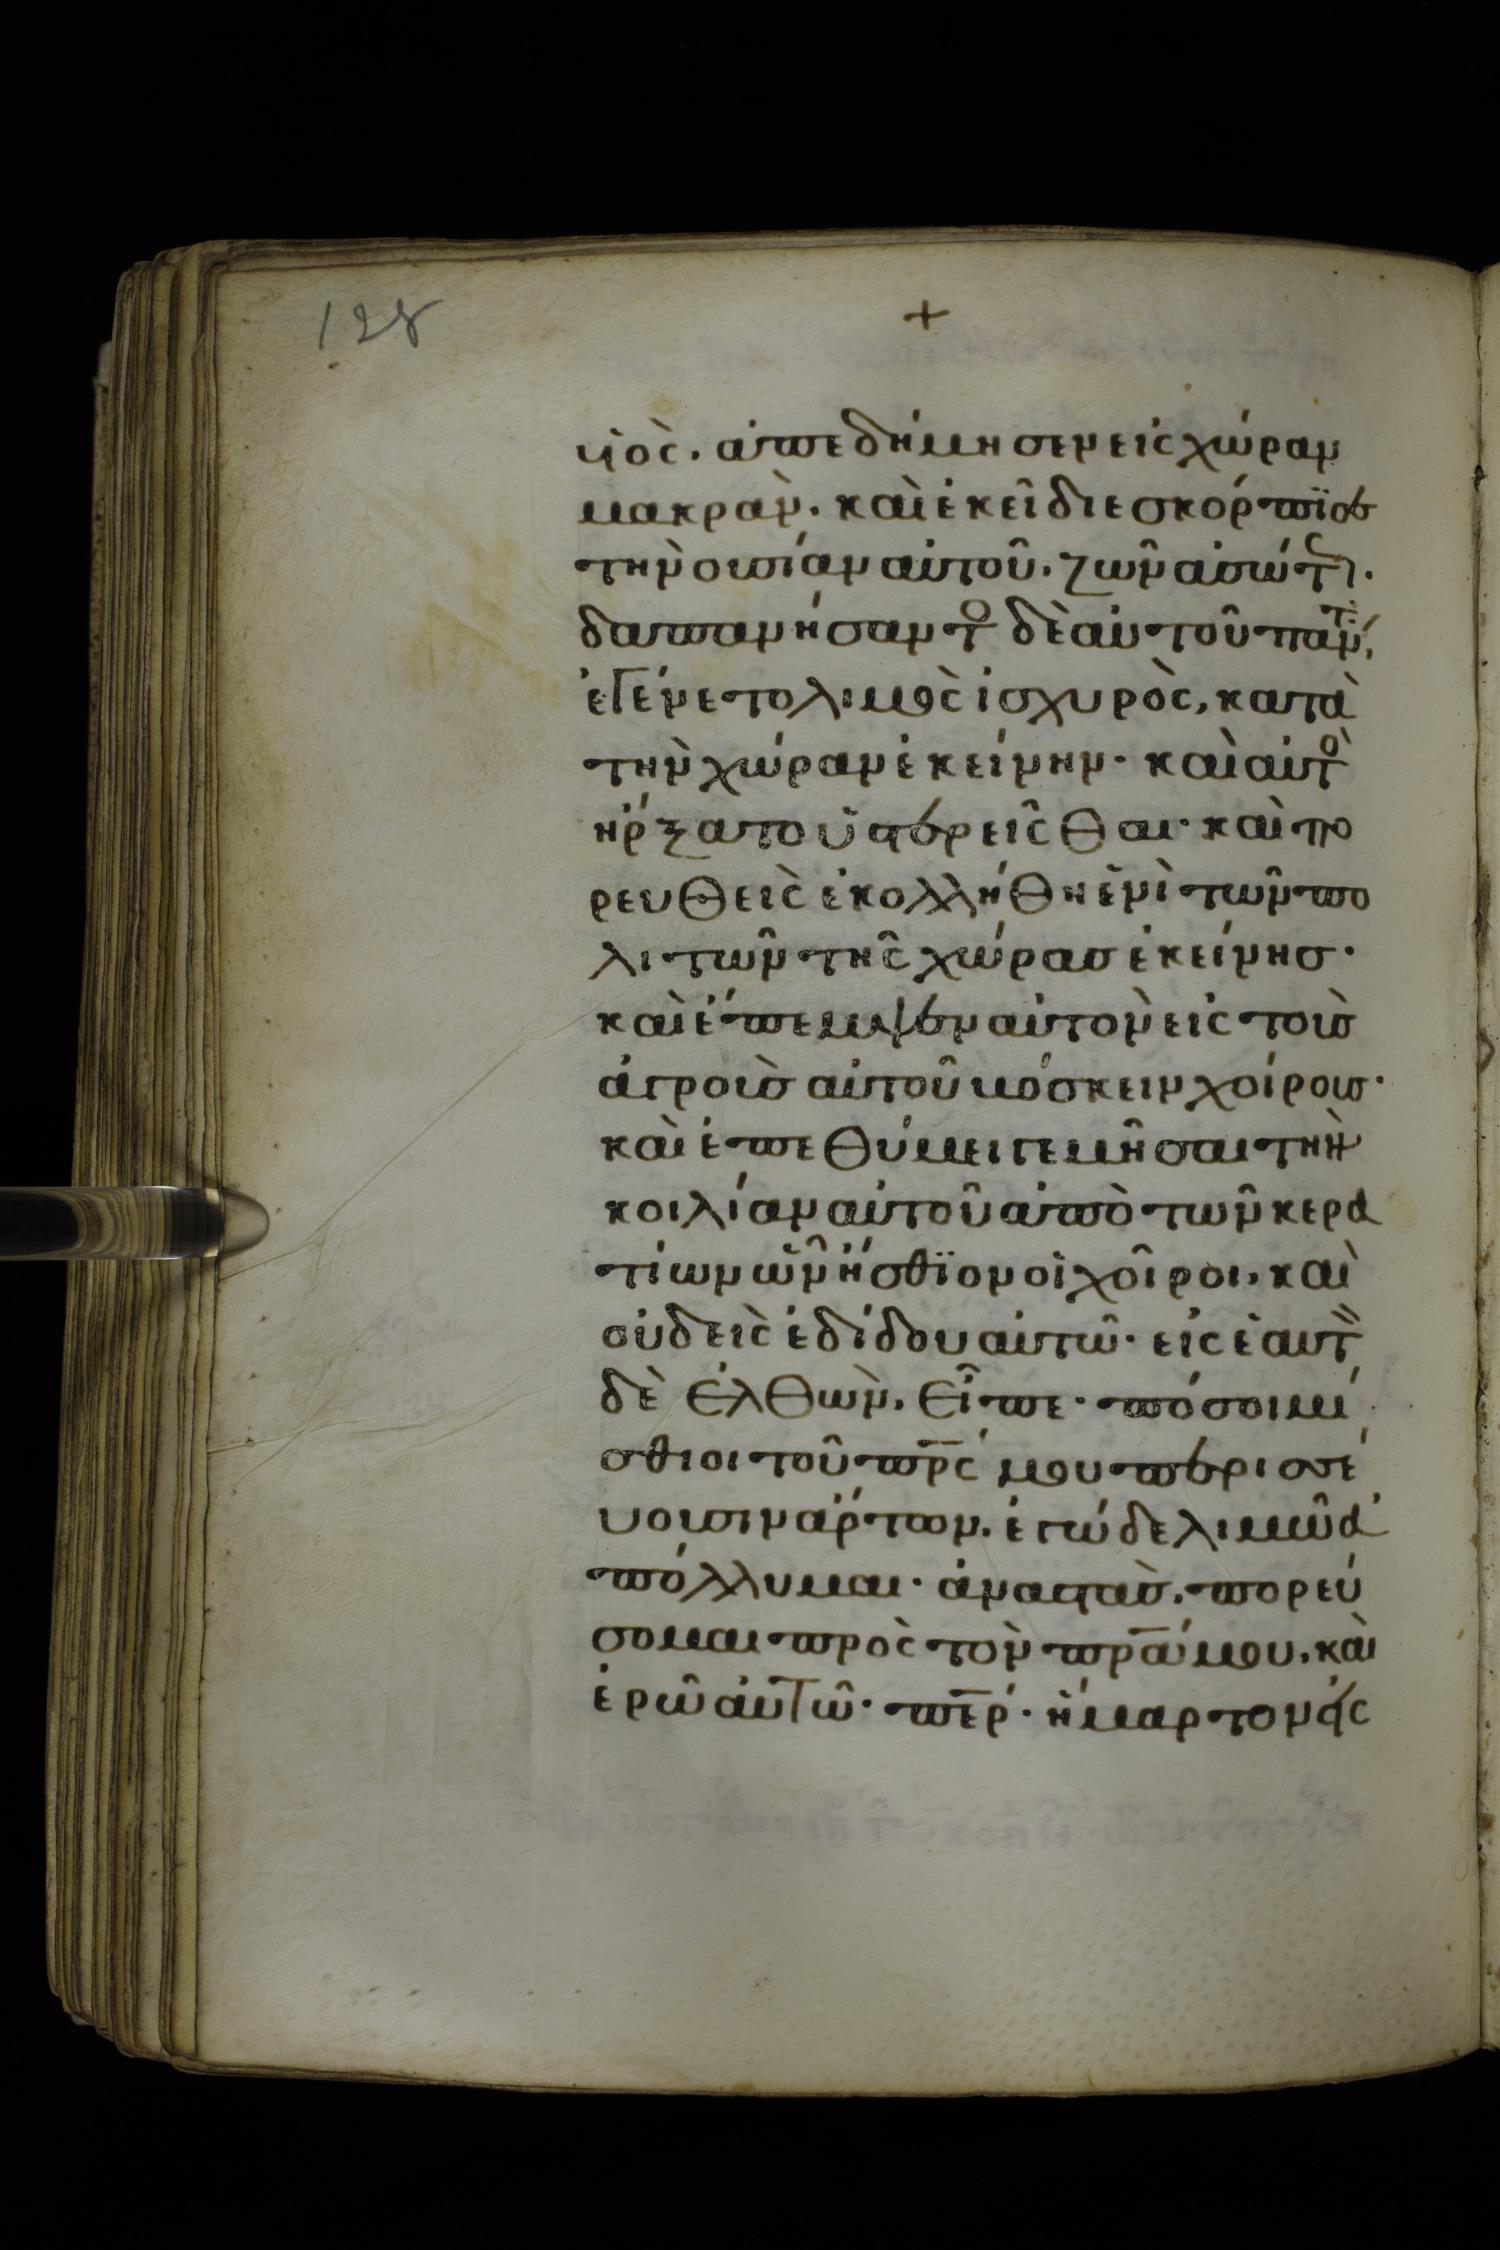 128
+
υἱὸς. ἀπεδήμησεν εἰς χώραν
μακρὰν. καὶ ἐκεῖ διεσκόρπϊσε
τὴν οὐσίαν αὐτοῦ. ζῶν ἀσώτως.
δαπανήσαντο δὲ αὐτοῦ πάντα,
ἐγένετο λιμὸς ἰσχυρὸς, κατὰ
τὴν χώραν ἐκείνην. καὶ αὐτὸ
ἤρξατο ὑστερεῖσθαι. καὶ πο
ρευθεὶς ἐκολλήθη ἑνὶ τῶν πο
λιτῶν τῆς χώρας ἐκείνης.
καὶ ἔπεμψεν αὐτὸν εἰς τοὺς
ἀγροὺς αὐτοῦ βόσκειν χοίρους.
καὶ ἐπεθύμει γεμῆσαι τὴν
κοιλίαν αὐτοῦ ἀπὸ τῶν κερα
τίων ὧν ἤσθϊον οἱ χοῖροι. καὶ
οὐδεὶς ἐδίδου αὐτῶ. εἰς ἑαυτὸν
δὲ ἐλθὼν. εἶπε. πόσοι μί
σθιοι τοῦ πρς μου περισσέ
υουσιν ἄρτων. ἐγώ δε λιμῶ ἀ
πόλλυμαι. ἀναστὰς. πορεύ
σομαι πρὸς τὸν πρα μου. καὶ
ἐρῶ αὐτῶ. περ. ἥμαρτον εἰς